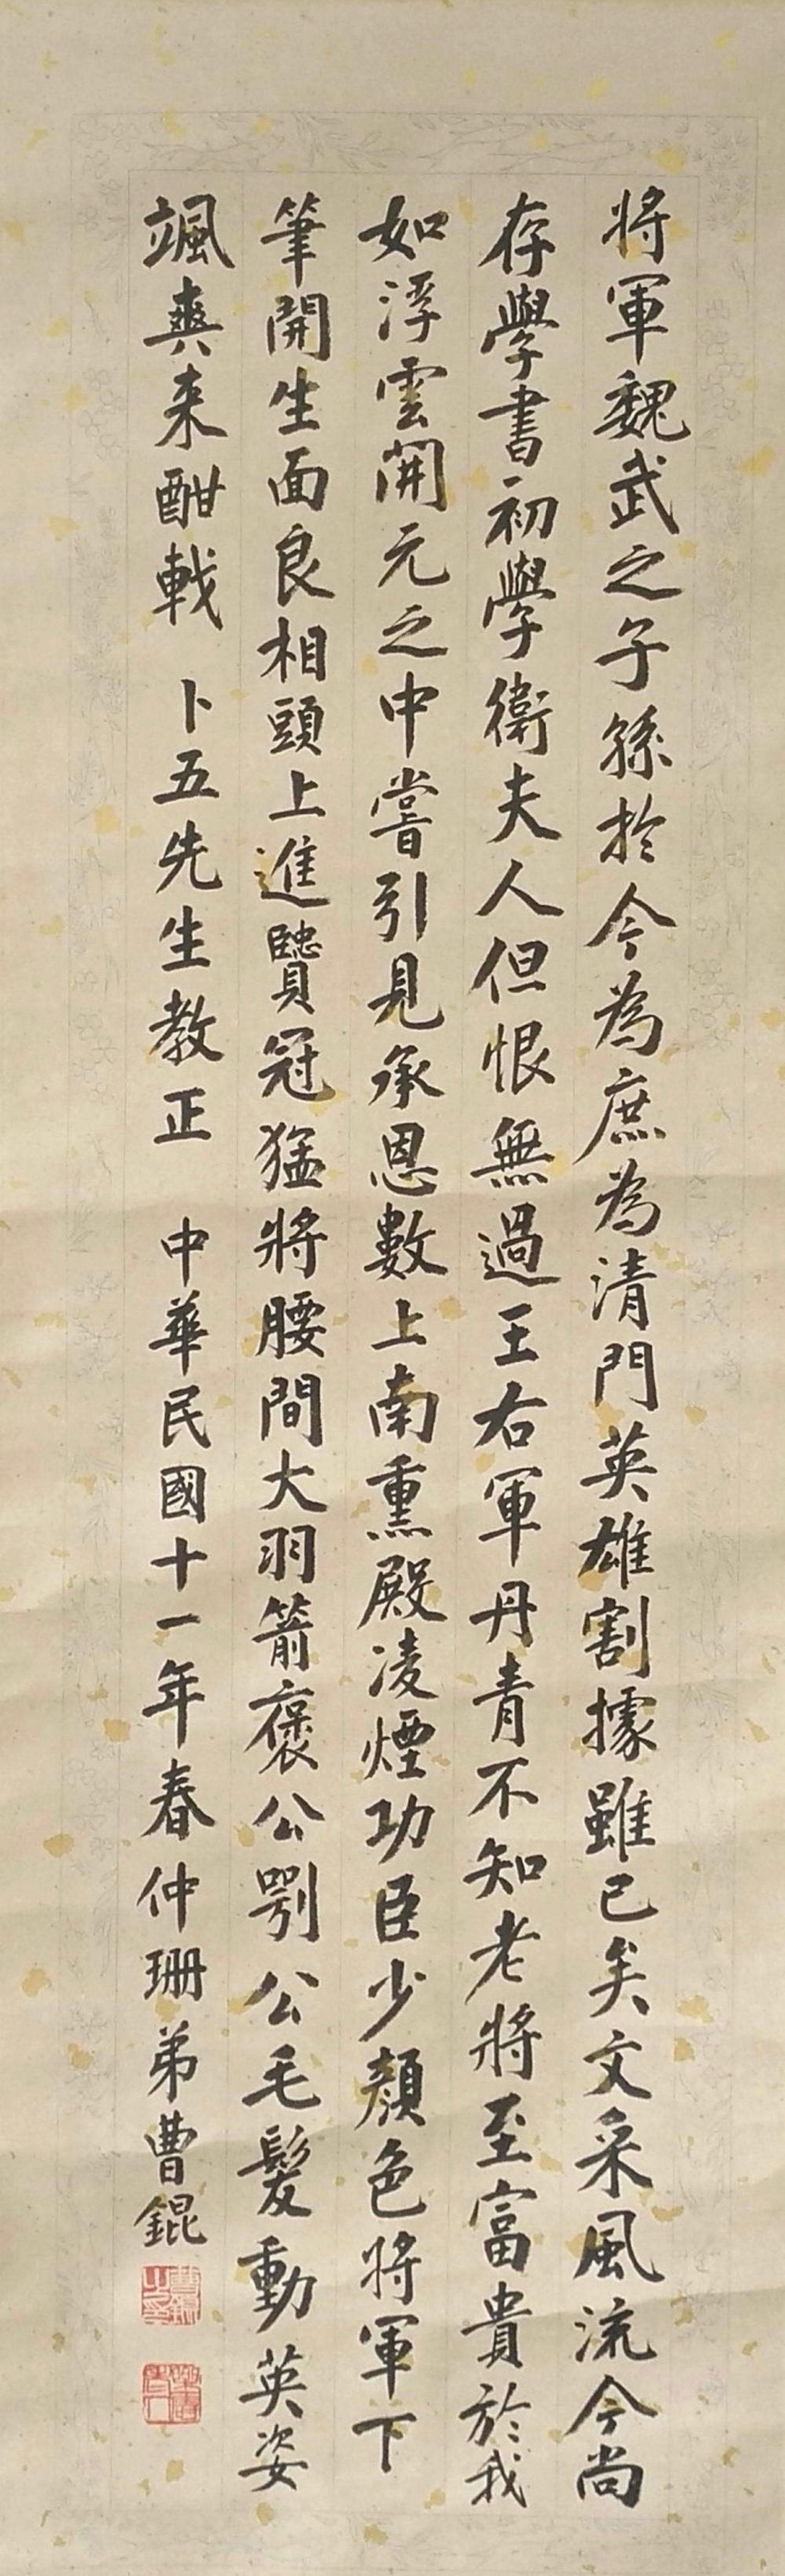 將軍魏武之子孫於今為庶為清門英雄割據雖已矣文采風流今尚
存學書初學衛夫人但恨無過王右軍丹青不知老將至富貴於我
如浮雲開元之中嘗引見承恩數上南熏殿凌煙功臣少顏色將軍下
筆開生面良相頭上進賢冠猛將腰間大羽箭褒公鄂公毛髮動英姿
颯爽来酣戰 卜五先生教正 中華民國十一年春仲珊弟曹錕